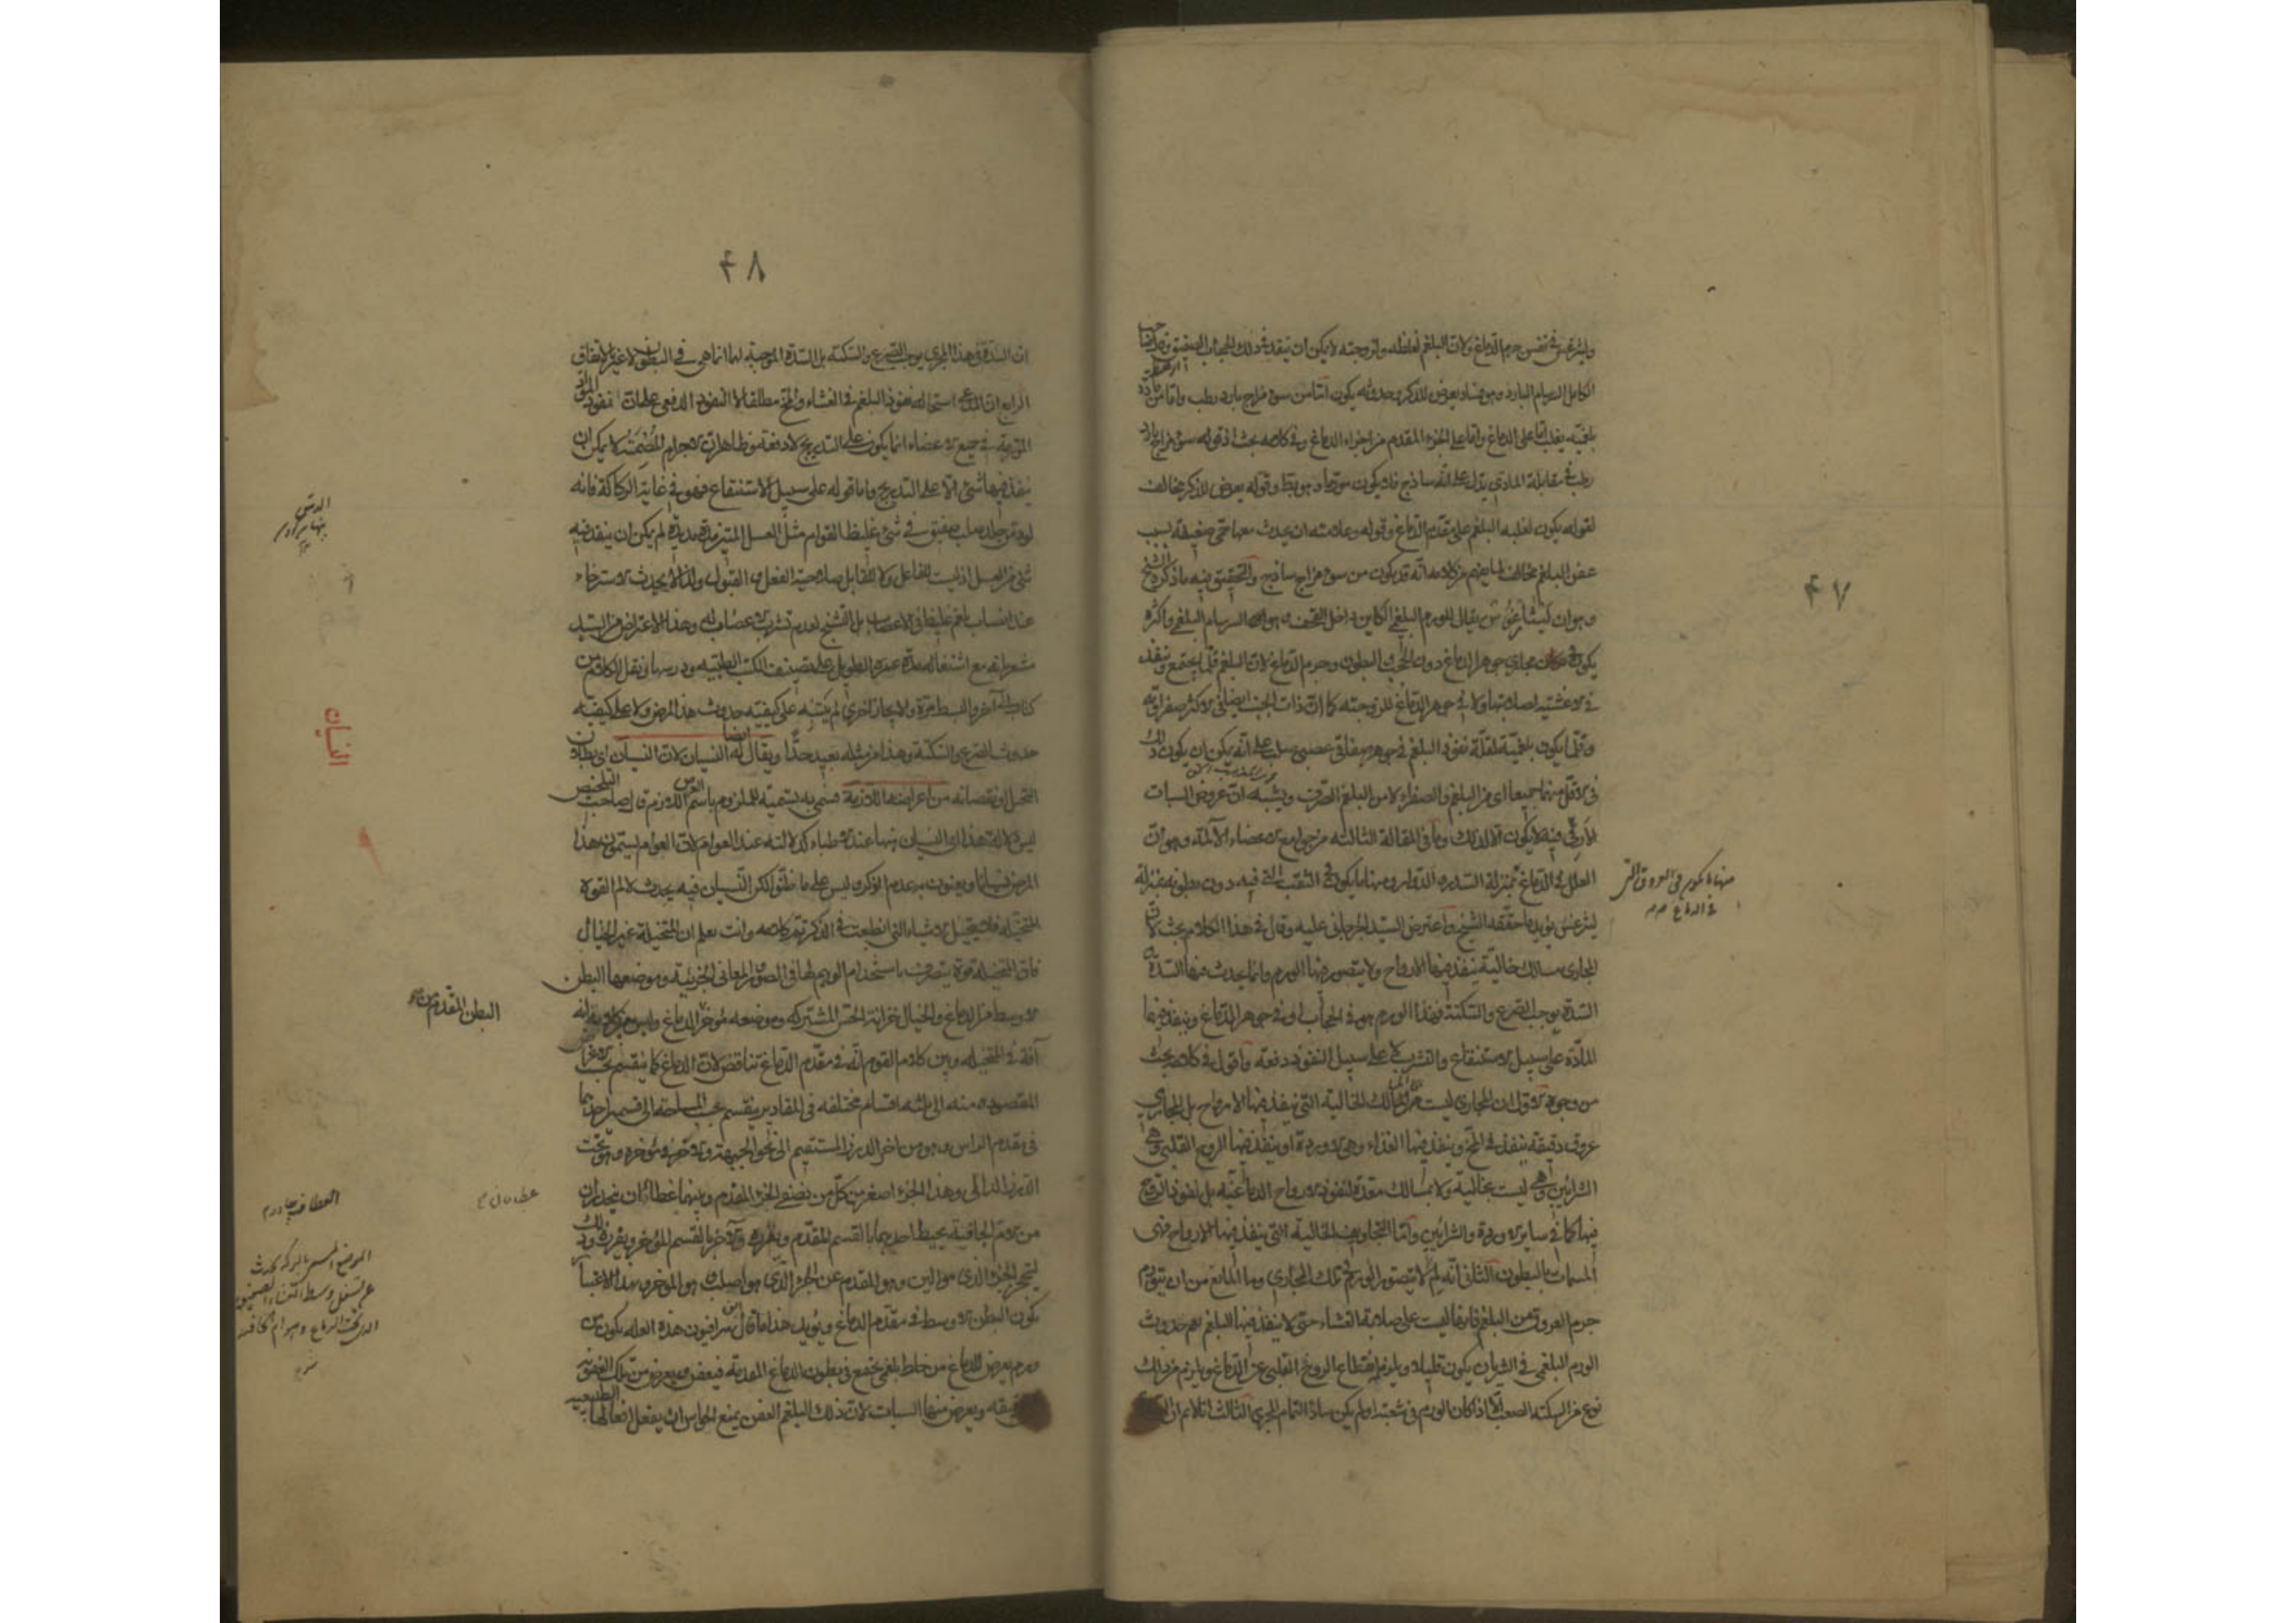 ۴۷
وليثرغس في نفس جرم الدماغ ولان البلغم لغلظه ولزوجته لا يمكن ان ينفذ في ذلك الحجاب الصفيق
الكامل السرسام البارد وهو فساد يعرض للذكر وحدوثه يكون اما من سوء مزاج بارد رطب واما من مادة
بلغمية يغلب اما على الدماغ واما على الجزء المقدم من اجزاء الدماغ وفي كلامه بحث اذ قوله سوء مزاج بارد
رطب في مقابلة المادي يدل على انه ساذج وقوله يعرض للذكر مخالف
لقوله يكون لغلبة البلغم على مقدم الدماغ وقوله وعلامته ان يحدث معها حمى ضعيفة بسبب
عفن البلغم مخالف لما يفهم من كلامه انه قد يكون من سوء مزاج ساذج والتحقيق فيه ما ذكره الشيخ
وهو ان ليثارغوس يقال للورم البلغمي الكاين داخل القحف وهو السرسام البلغمي واكثره
يكون في مجاري جوهر الدماغ دون الحجب والبطون وجرم الدماغ لان البلغم قلما يجتمع وينفذ
في الاغشية لصلابتها ولا في جوهر الدماغ للزوجته كما ان ذات الجنب ايضا في الاكثر صفراوية
وقلما يكون بلغمية لقلة نفوذ البلغم في جوهر صفاقي عصبي صلب على انه يمكن ان يكون ذلك
في الاقل منهما جميعا اى من البلغم والصفراء لا من البلغم الصرف ويشبه ان عروض السبات
فيه لا يكون الا لذلك وما في المقالة الثالثة من جوامع الاعضاء الآلمة وهو ان
العلل في الدماغ بمنزلة السدر والدوار ومنها ما يكون في الثقب التي فيه دون بطونه بمنزلة
ليثرغس يؤيد ما حققه الشيخ واعترض السيد الجرجاني عليه وقال في هذا الكلام بحث لان
المجاري مسالك خالية ينفذ فيها الارواح ولا يتصور فيها الورم وانما يحدث فيها السدة
السدة يوجب الصرع والسكتة فهذا الورم هو في الحجاب او في جوهر الدماغ وينفذ فيها
المادة على سبيل الاستنقاع والتشرب لا على سبيل النفوذ دفعة واقول في كلامه بحث
من وجوه الاول ان المجاري ليست هي المسالك الخالية التي ينفذ فيها الارواح بل المجاري
عروق دقيقة ينفذ في المخ وينفذ فيها الغذاء وهي الاوردة او ينفذ فيها الروح القلبي وهي
الشرايين وهي ليست بخالية ولا بمسالك معدة لنفوذ الارواح الدماغية بل لنفوذ الروح
فيها كما في ساير الاوردة والشرايين واما التجاويف الخالية التي ينفذ فيها الارواح فهى
المسمات بالبطون الثاني انه لم لا يتصور الورم في تلك المجاري وما المانع من ان يتورم
جرم العروق من البلغم فانها ليست على صلابة الغشاء حتى لا ينفذ فيها البلغم نعم حدوث
الورم البلغمي في الشريان يكون قليلا ويلزم انقطاع الروح القلبي عن الدماغ ويلزم من ذلك
نوع من السكتة الصعب الا اذا كان الورم في شعبة او لم يكن سادا لتمام المجرى الثالث انا لا نم ان
في الدماغ
۴۸
ان السدة في هذا المجرى يوجب الصرع والسكتة بل السدة الموجبة لهما انما هي في البطون لا غير بالاتفاق
الرابع ان استحالة نفوذ البلغم في الغشاء والمخ مطلقا لا النفوذ الدفعي على ان نفوذ المواد
المورمة في جميع الاعضاء انما يكون على التدريج لا دفعة فظاهر ان الاجرام المصمتة لا يمكن ان
ينفذ فيها شئ الا على التدريج واما قوله على سبيل الاستنقاع فهو في غاية الركاكة فانه
لو وقع جلد صلب صفيق في شئ غليظ القوام مثل العسل المتين مدة مديدة لم يكن ان ينفذ فيه
شئ من العسل اذ ليست للفاعل ولا للقابل صلاحية الفعل والقبول ولذا لا يحدث الاسترخاء
عند انصباب بلغم غليظ في الاعصاب بل التشنج لعدم تشرب الاعصاب له وهذا الاعتراض من السيد
مشعر بانه مع اشتغاله مدة عمره الطويل على تصنيف الكتب الطبية ودرسها ونقل الكلام من
كتاب الى آخر بالبسط مرة والايجاز اخرى لم يتنبه على كيفية حدوث هذا المرض ولا على كيفية
حدوث الصرع والسكتة وهذا من مثله بعيد جدا ويقال له ايضا النسيان لان النسيان اى بطلان
التخيل او نقصانه من اعراضها اللازمة فسمى به تسمية للملزوم باسم اللازم قال صاحب التلخيص
ليس دلالة هذا اى النسيان منها عند الاطباء كدلالته عند العوام لان العوام يسمون هذا
المرض نسيانا ويعنون به عدم الذكر وليس على ما ظنوا لكن النسيان فيه يحدث لالم القوة
المتخيلة فلا يتخيل الاشياء التي انطبعت في الذكر تم كلامه وانت تعلم ان المتخيلة غير الخيال
فان المتخيلة قوة يتصرف باستخدام الوهم لها في الصور والمعاني الجزئية وموضعها البطن
الاوسط من الدماغ والخيال خزانة الحس المشترك وموضعه مؤخر
آفة في المتخيلة وبين كلام القوم انه في مقدم الدماغ تناقض لان الدماغ كما ينقسم بحسب الاغراض
المقصودة منه الى ثلثة اقسام مختلفة في المقادير ينقسم بحسب المساحة الى قسمين احدهما
في مقدم الراس وهو من آخر الدرز المستقيم الى نحو الجبهة والاخر مؤخره وهو تحت
الدرز الدالى وهذا الجزء اصغر من كل من نصفي الجزء المقدم وبينهما غطاءان ينحدران
من الام الجافية يحيط احدهما بالقسم المقدم ويفرزه والآخر بالقسم المؤخر ويفرزه وذلك
ليتميز الجزء الذي هو الين وهو المقدم عن الجزء الذي هو اصلب وهو المؤخر وبهذا الاعتبار
يكون البطن الاوسط في مقدم الدماغ ويؤيد هذا ما قال ابن سرافيون هذه العلة يكون من
ورم يعرض للدماغ من خلط بلغمي يجتمع في بطون الدماغ المقدمة فيعفن ويعرض من تلك العفونة
ويعرض منها السبات لان ذلك البلغم العفن يمنع الحواس ان يفعل افعالها الطبيعية
النسيان
البطن المقدم